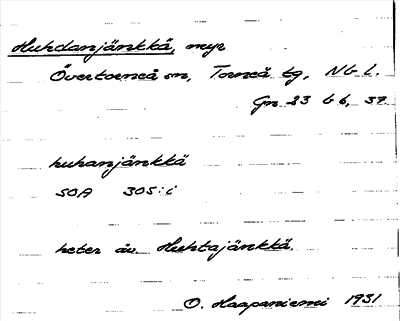 Huhdanjänkkä, myr
Övertorneå sn, Torneå tg, Nb l.
Gn 23 b 6, 37
huhanjänkkä
SOA 305:i
heter äv. Huhtajänkkä.
O. Haapaniemi 1931